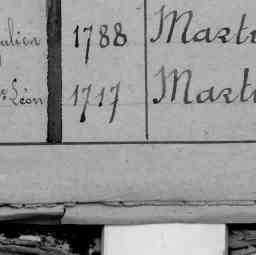 ulien 1788 Mart
Léon 1717 Mart